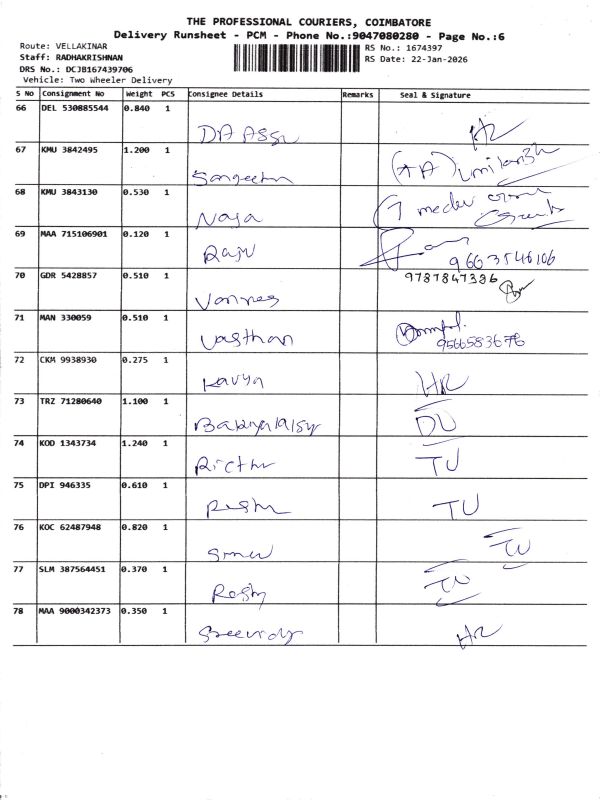 THE PROFESSIONAL COURIERS, COIMBATORE
Delivery Runsheet - PCM - Phone No.:9047080280 - Page No.:6
Route: VELLAKINAR
Staff: RADHAKRISHNAN
DRS No.: DCJB167439706
Vehicle: Two Wheeler Delivery
RS No.: 1674397
RS Date: 22-Jan-2026
S No Consignment No Weight PCS Consignee Details Remarks Seal & Signature
66 DEL 530885544 0.840 1
67 KMU 3842495 1.200 1 Sangeetha
68 KMU 3843130 0.530 1 Naga
69 MAA 715106901 0.120 1 Raju 9663546106
70 GDR 5428857 0.510 1 9787847336
71 MAN 330059 0.510 1 Vasthan 9566583676
72 CKM 9938930 0.275 1 Kavya HR
73 TRZ 71280640 1.100 1 DU
74 KOD 1343734 1.240 1 TU
75 DPI 946335 0.610 1 TU
76 KOC 62487948 0.820 1 TU
77 SLM 387564451 0.370 1 TU
78 MAA 9000342373 0.350 1 HR